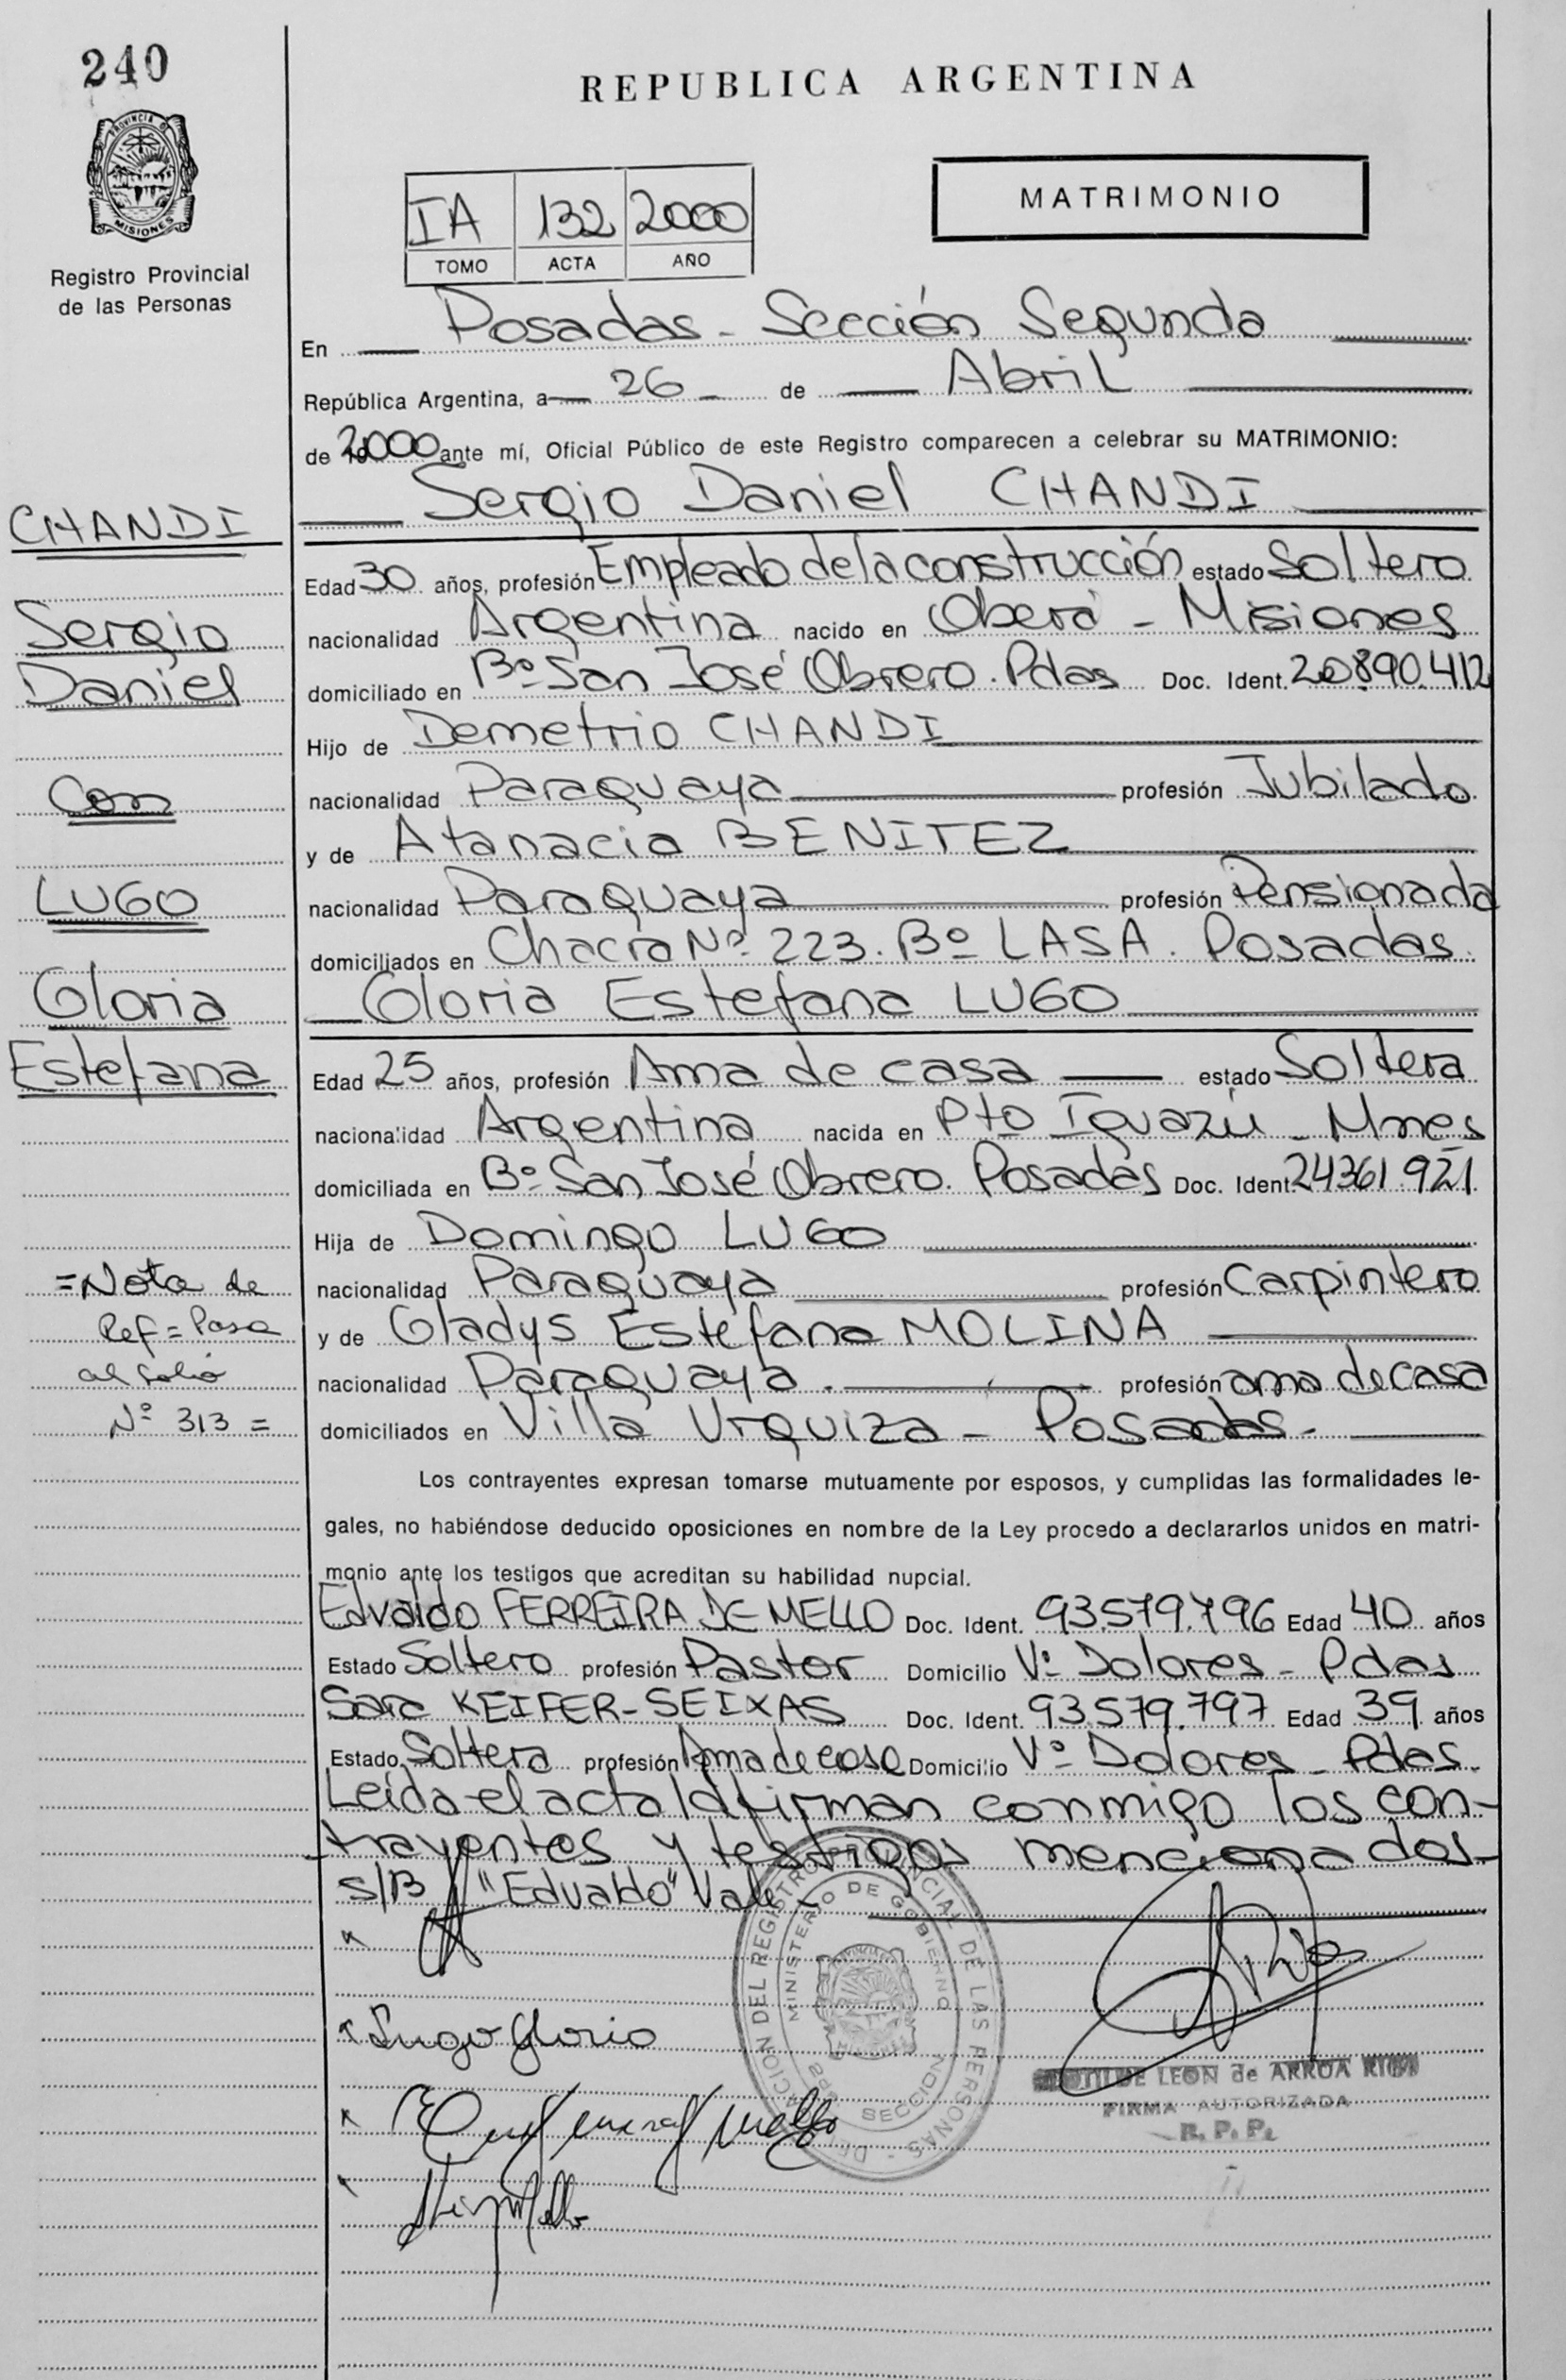 240
REPUBLICA ARGENTINA
PROVINCIA D
MISIONES
Registro Provincial
de las Personas
MATRIMONIO
IA 132 2000
TOMO ACTA AÑO
En Posadas - Sección Segunda
República Argentina, a 26 de Abril
de 2000 ante mí, Oficial Público de este Registro comparecen a celebrar su MATRIMONIO:
Sergio Daniel CHANDI
CHANDI
Sergio
Daniel
Con
LUGO
Gloria
Estefana
Edad 30 años, profesión Empleado de la construcción estado Soltero
nacionalidad Argentina nacido en Oberá - Misiones
domiciliado en Bº San José Obrero. Pdas Doc. Ident. 20890.412
Hijo de Demetrio CHANDI
nacionalidad Paraguaya profesión Jubilado
y de Atanacia BENITEZ
nacionalidad Paraguaya profesión Pensionada
domiciliados en Chacra Nº 223. Bº LASA. Posadas.
Gloria Estefana LUGO
Edad 25 años, profesión Ama de casa estado Soltera
nacionalidad Argentina nacida en Pto Iguazú - Mnes
domiciliada en Bº San José Obrero. Posadas Doc. Ident. 24361.921
Hija de Domingo LUGO
nacionalidad Paraguaya profesión Carpintero
y de Gladys Estefana MOLINA
nacionalidad Paraguaya. profesión ama de casa
domiciliados en Villa Urquiza - Posadas-
=Nota de
Ref = Pasa
al folio
Nº 313 =
Los contrayentes expresan tomarse mutuamente por esposos, y cumplidas las formalidades le-
gales, no habiéndose deducido oposiciones en nombre de la Ley procedo a declararlos unidos en matri-
monio ante los testigos que acreditan su habilidad nupcial.
Edvaldo FERREIRA DE MELLO Doc. Ident. 93.579.796 Edad 40 años
Estado Soltero profesión Pastor Domicilio Vº Dolores - Pdas
Sara KEIFER-SEIXAS Doc. Ident. 93.579.797 Edad 39 años
Estado Soltera profesión Ama de casa Domicilio Vº Dolores - Pdas.
Leída el acta la firman conmigo los con-
trayentes y testigos mencionados-
S/B "Edvaldo" Vale-
Lugo Gloria
MINISTERIO DE GOBIERNO
SECCION
LEON de ARRUA
FIRMA AUTORIZADA
R. P. P.